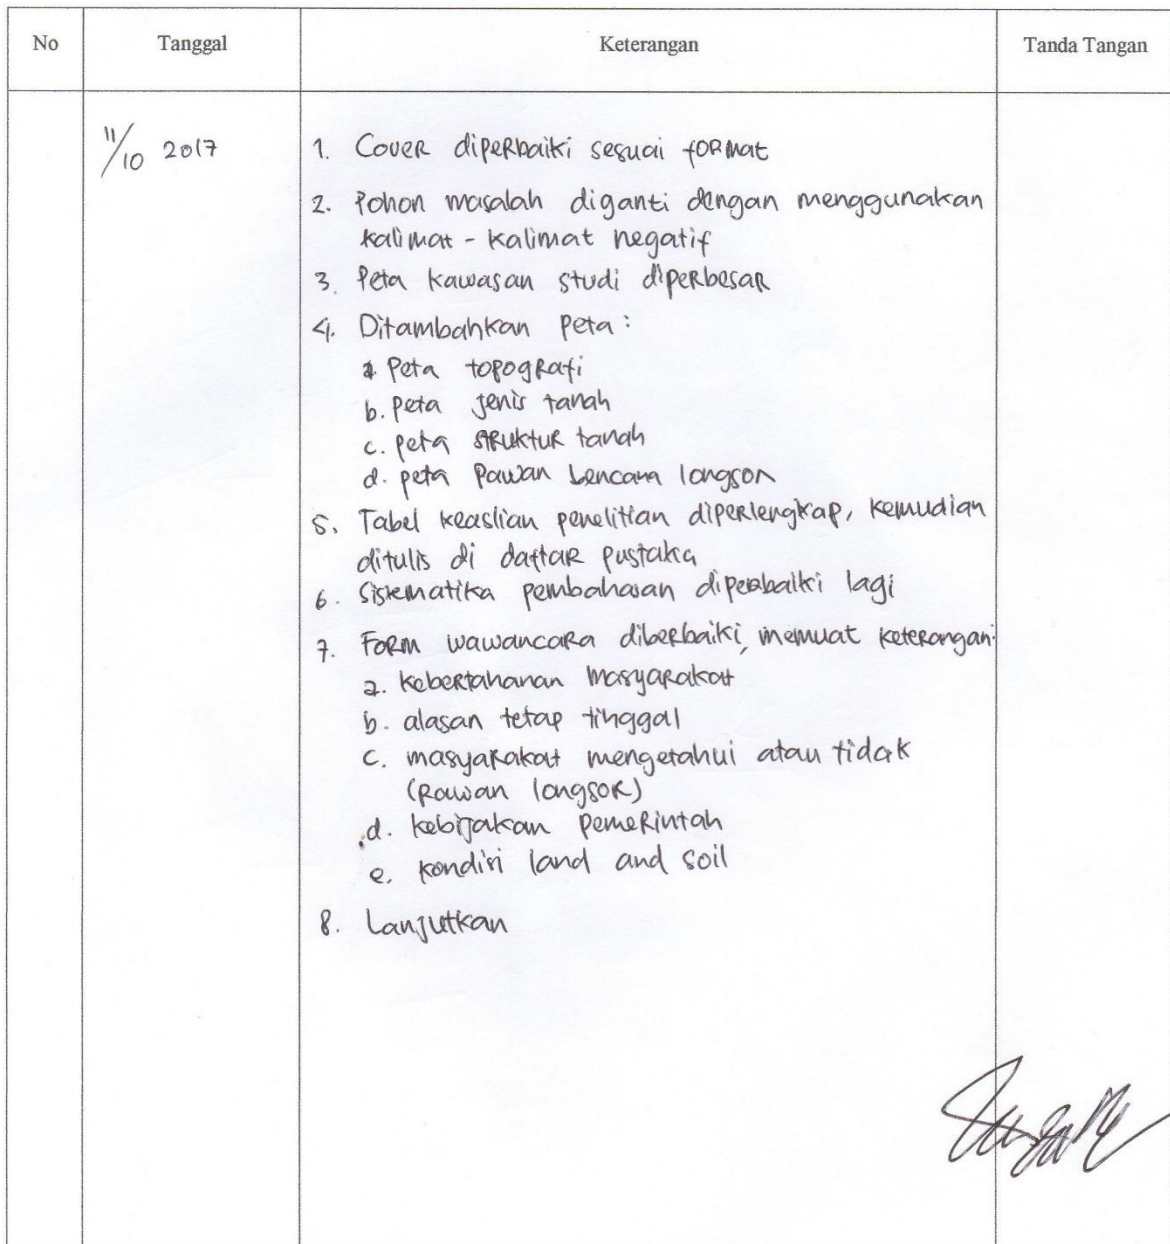 No Tanggal Keterangan Tanda Tangan
11/10 2017
1. Cover diperbaiki sesuai format
2. Pohon masalah diganti dengan menggunakan
kalimat - kalimat negatif
3. Peta kawasan studi diperbesar
4. Ditambahkan Peta :
a. Peta topografi
b. Peta jenis tanah
c. peta struktur tanah
d. peta Rawan bencana longsor
5. Tabel keaslian penelitian diperlengkap, kemudian
ditulis di daftar pustaka
6. Sistematika pembahasan diperbaiki lagi
7. Form wawancara diberbaiki, memuat keterangan:
a. kebertahanan masyarakat
b. alasan tetap tinggal
c. masyarakat mengetahui atau tidak
(Rawan longsor)
d. kebijakan pemerintah
e. kondisi land and soil
8. Lanjutkan